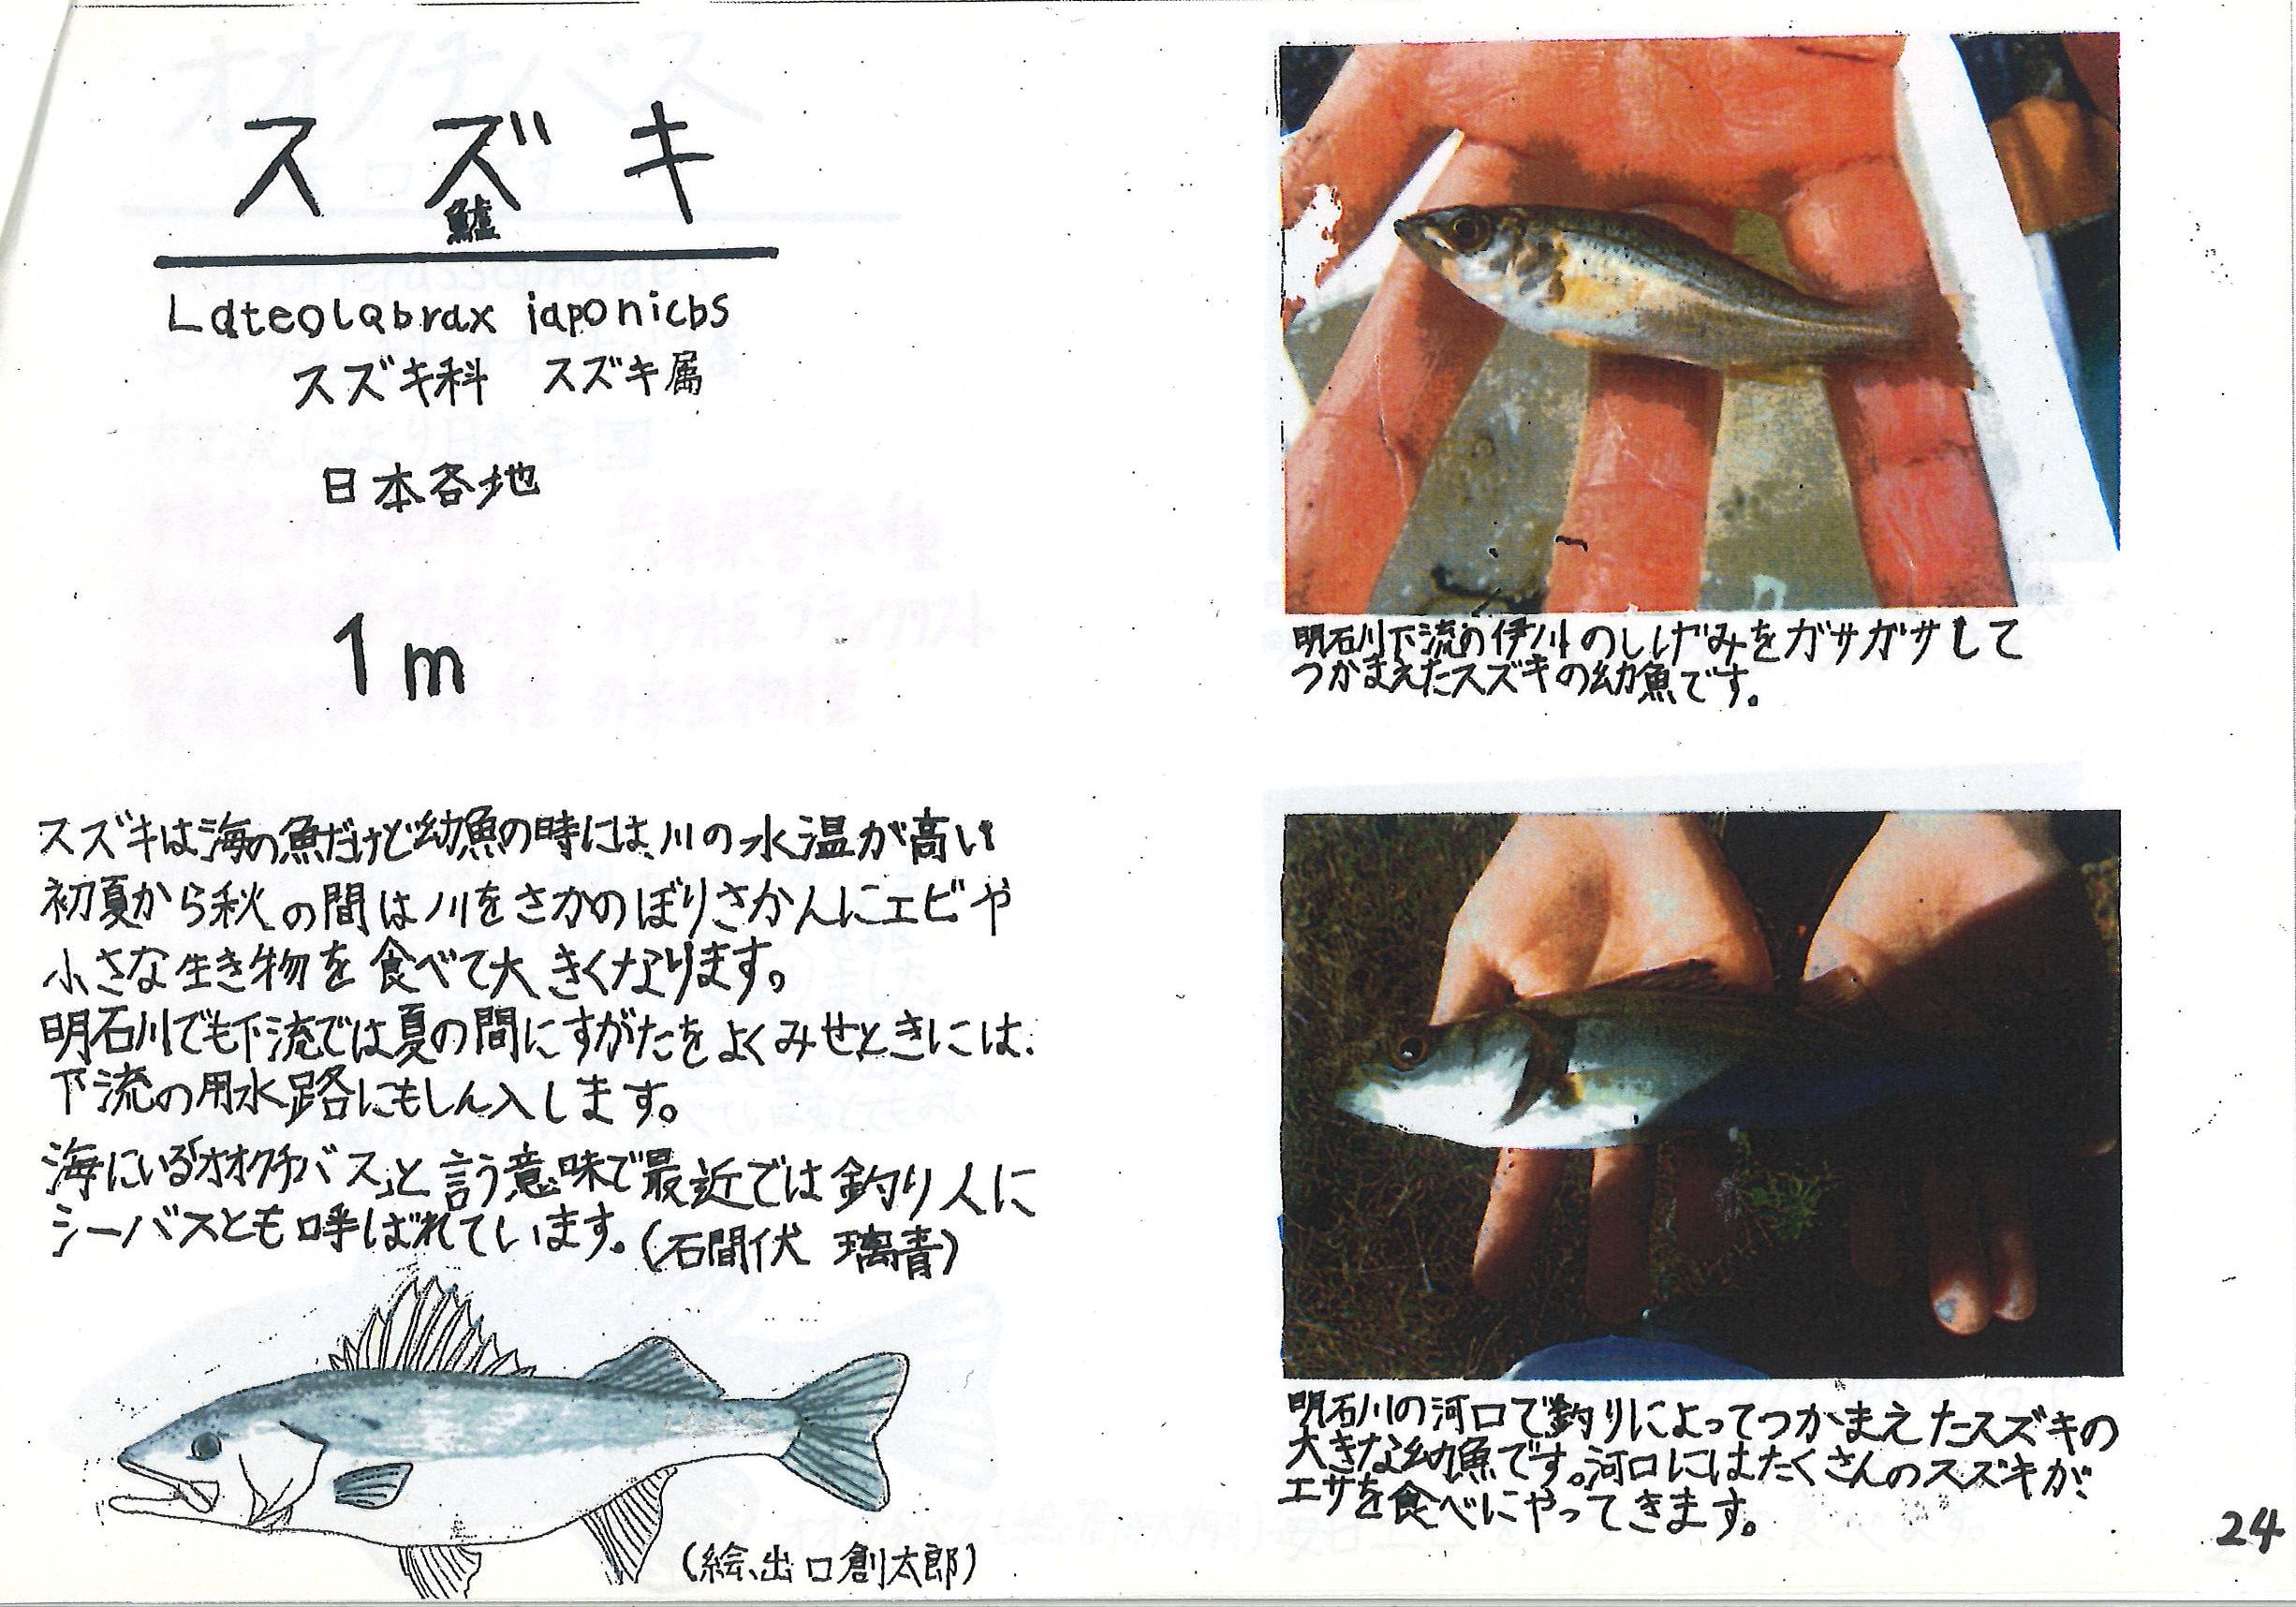 スズキ
鱸
Lateolabrax iaponicbs
スズキ科 スズキ属
日本各地
1m
スズキは海の魚だけど幼魚の時には、川の水温が高い
初夏から秋の間は川をさかのぼりさかんにエビや
小さな生き物を食べて大きくなります。
明石川でも下流では夏の間にすがたをよくみせときには、
下流の用水路にもしん入します。
海にいる「オオクチバス」と言う意味で最近では釣り人に
シーバスとも呼ばれています。(石間伏 璃青)
(絵、出口創太郎)
明石川下流の伊川のしげみをガサガサして
つかまえたスズキの幼魚です。
明石川の河口で釣りによってつかまえたスズキの
大きな幼魚です。河口にはたくさんのスズキが、
エサを食べにやってきます。
24